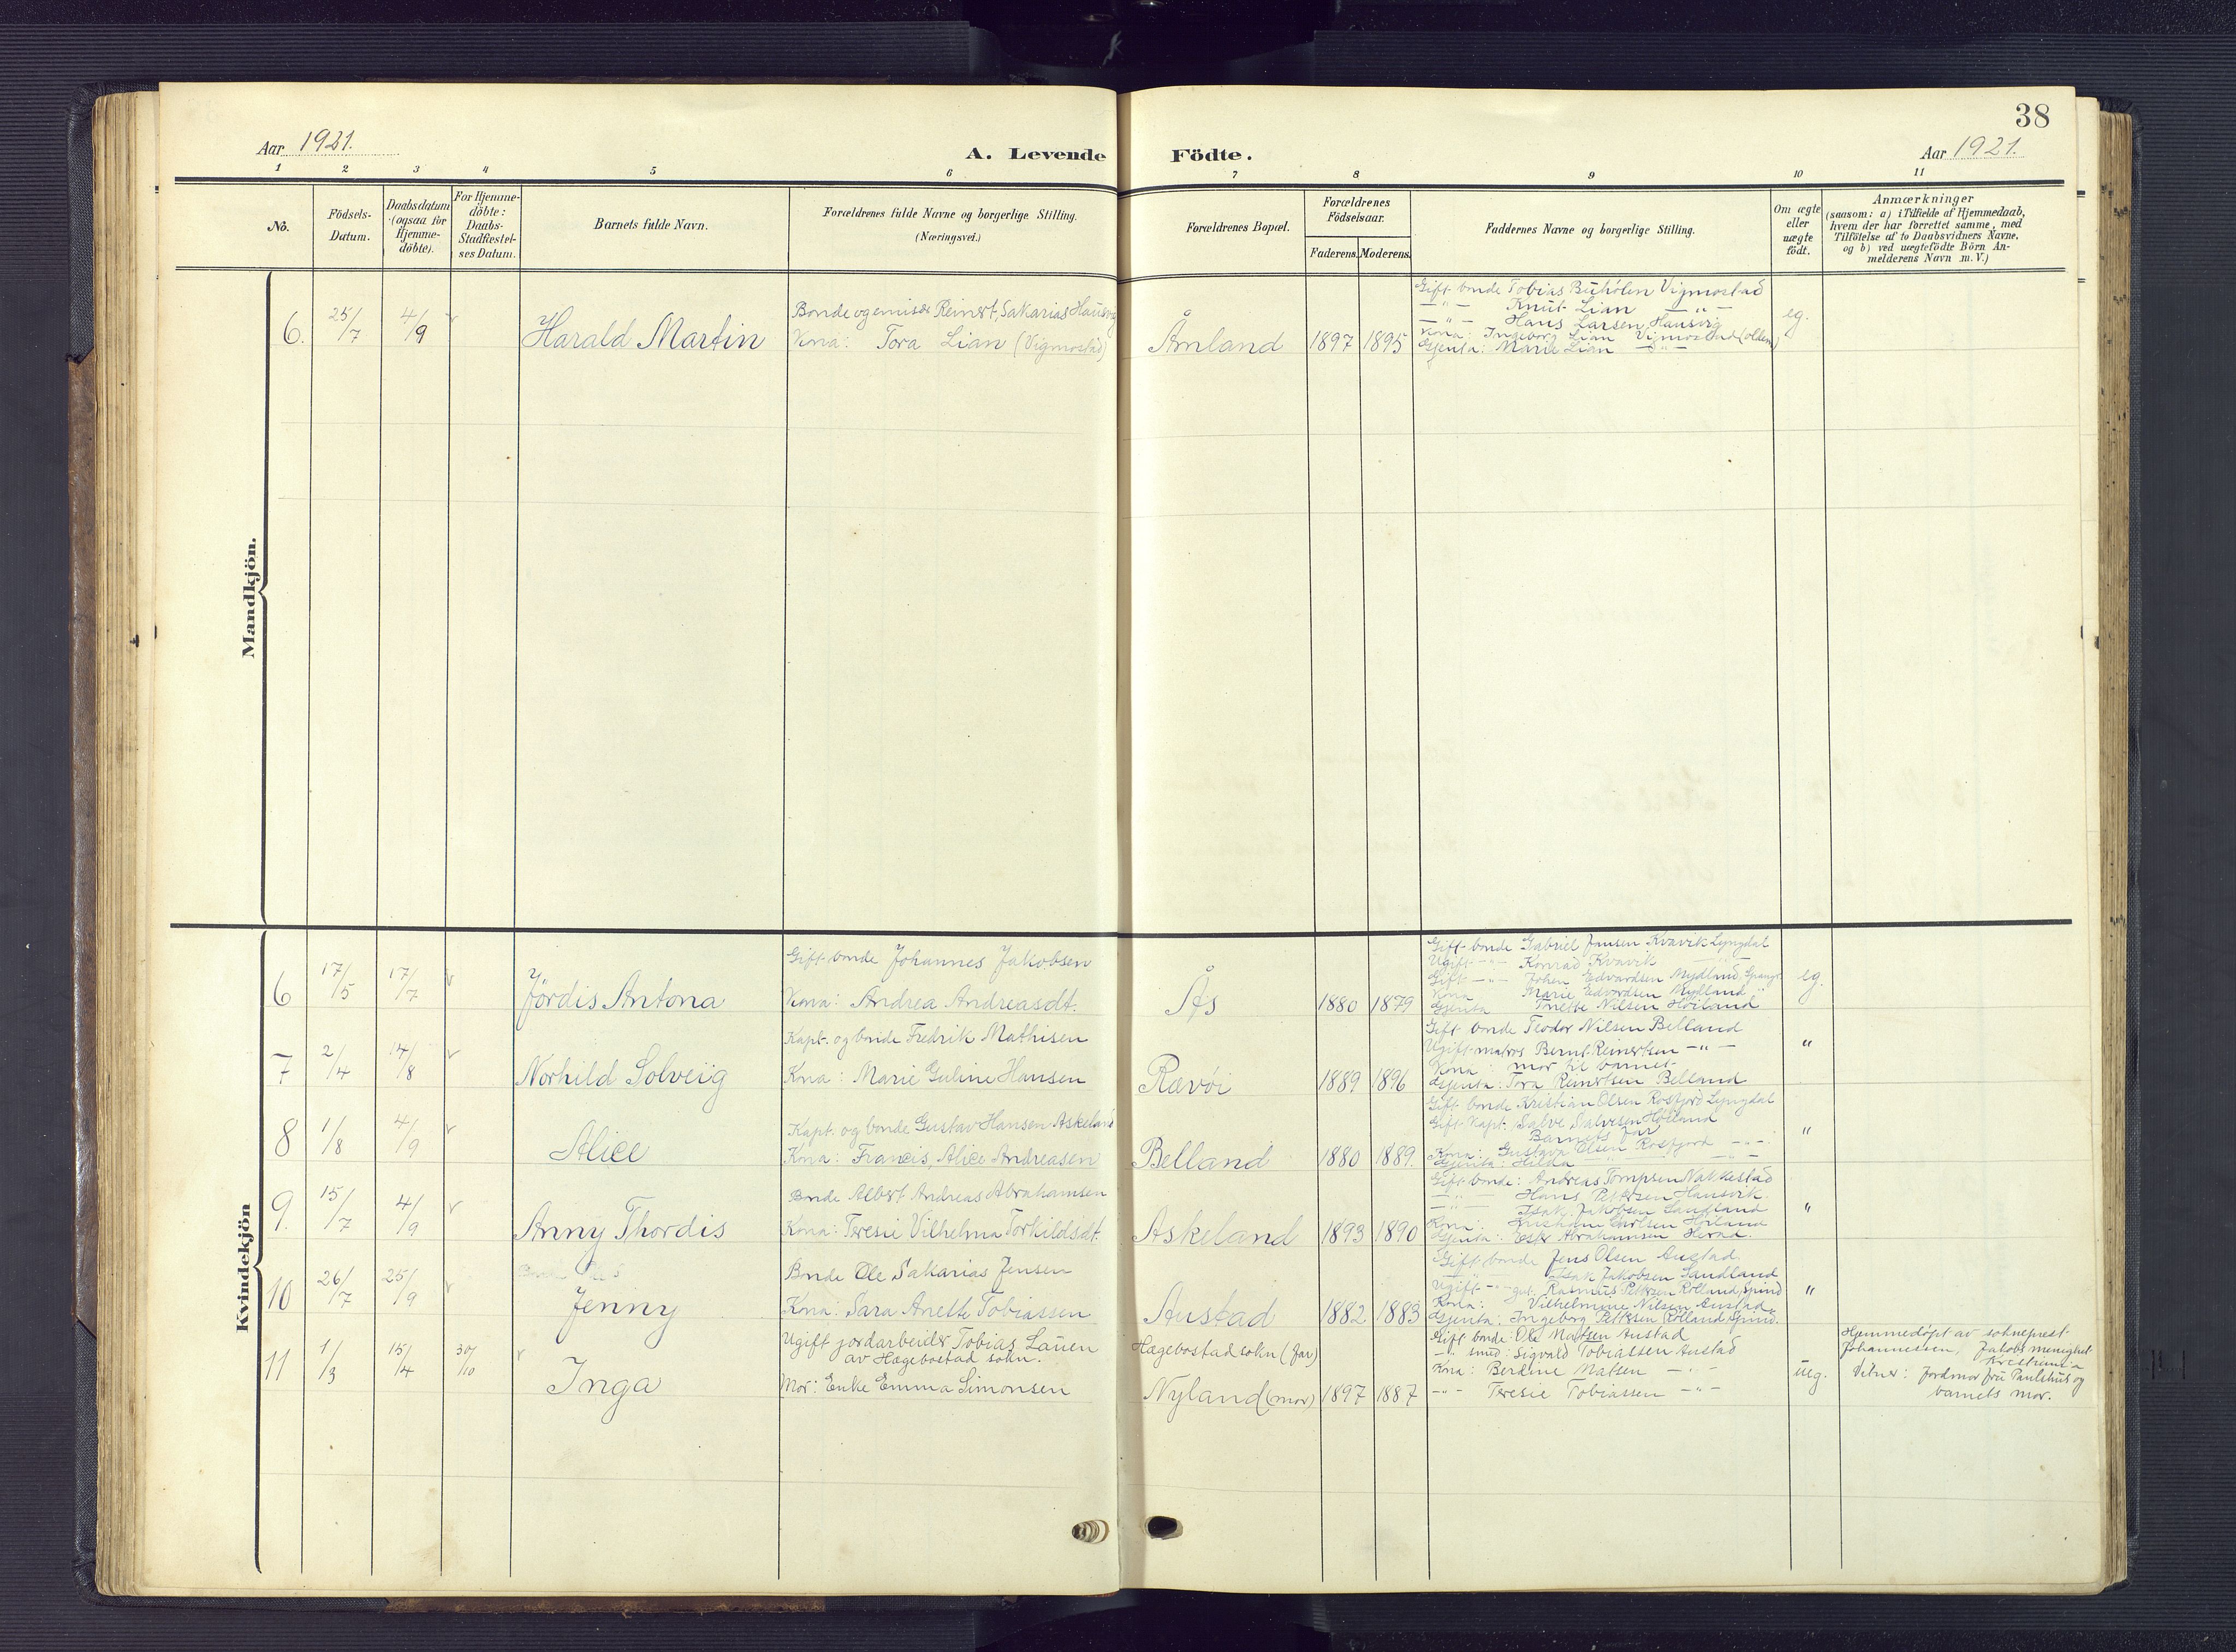 38
Aar 1921.
A. Levende Födte.
Aar 1921.
1 2 3 4 5 6 7 8 9 10 11
No.
Födsels-
Datum.
Daabsdatum
(ogsaa for
Hjemme-
döbte).
For Hjemme-
döbte:
Daabs-
Stadfæstel-
ses Datum.
Barnets fulde Navn.
Forældrenes fulde Navne og borgerlige Stilling.
(Næringsvei.)
Forældrenes Bopæl.
Forældrenes
Födselsaar.
Faderens. Moderens.
Faddernes Navne og borgerlige Stilling.
Om ægte
eller
uægte
födt.
Anmærkninger
(saasom: a) i Tilfælde af Hjemmedaab,
hvem der har forrettet samme, med
Tilföielse af to Daabsvidners Navne,
og b) ved uægtefödte Börn An-
melderens Navn m. V.)
Mandkjön.
6. 25/7 4/9 Harald Martin
Bonde og emisær Reinert Sakarias Hausvig
Kona: Tora Lian (Vigmostad)
Åmland 1897 1895
Gift bonde Tobias Buhölen Vigmostad
—"— Knut Lian —"—
—"— Hans Larsen Hausvig
Kona: Ingeborg Lian Vigmostad
Gjenta: Marie Lian —"—
eg.
Kvindekjön
6 17/5 17/7 Jördis Antona
Gift bonde Johannes Jakobsen
Kona: Andrea Andreasdt.
Ås 1880 1879
Gift bonde Gabriel Jansen Kvavik Lyngdal
Ugift —"— Konrad Kvavik
Gift —"— Johen Edvardsen Nydland,
Kona Marie Edvardsen Nydland
Gjenta Tonette Nilsen Höiland
eg.
7 2/4 14/8 Norhild Solveig
Kapt. og bonde Fredrik Mathisen
Kona: Marie Guline Hansen
Rævöi 1889 1896
Gift bonde Teodor Nilsen Belland
Ugift matros Bernt Reinertsen —"—
Kona: mor til barnet
Gjenta: Tora Reinertsen Belland
"
8 1/8 4/9 Alice
Kapt. og bonde Gustav Hansen Askeland
Kona: Francis, Alice Andreasen
Belland 1880 1889.
Gift bonde Kristian Olsen Rosfjord Lyngdal
Gift Kapt. Salve Salvesen Höiland
Barnets far
Kona: Gustava Olsen Rosfjord —"—
Gjenta: Hilda
"
9. 15/7 4/9 Anny Thordis
Bonde Albert Andreas Abrahamsen
Kona: Teresie Vilhelma Torkildsdt.
Askeland 1893 1890
Gift bonde: Andreas Tompsen Nakkestad
—"— Hans Pettersen Hausvik
—"— Isak Jakobsen Sandland
Kona: Karlsen Höiland
Gjenta: Ester Abrahamsen Herad.
"
10 26/7 25/9 Jenny
Bonde Ole Sakarias Jensen
Kona: Sara Anette Tobiassen
Austad 1882 1883
Gift bonde Jens Olsen Austad
Isak Jakobsen Sandland
Ugift —"— gut. Rasmus Pettersen Rölland, Spind
Kona: Vilhelmine Nilsen Austad
Gjenta: Ingeborg Pettersen Rölland, Spind.
"
11 1/3 15/4 30/10 Inga
Ugift jordarbeider Tobias Lauen
av Hægebostad sokn.
Mor: Enke Emma Simonsen
Hægebostad sokn (far)
Nyland (mor) 1897 1887
Gift bonde: Ole Matsen Austad
—"— smed: Sigvald Tobiassen Austad
Kona: Berdine Matsen —"—
—"— Teresie Tobiassen —"—
ueg.
Hjemmedöpt av sokneprest
Johannessen, Jakobs menighet
Kristiania
Vitner: Jordmor fru Paulshus og
barnets mor.